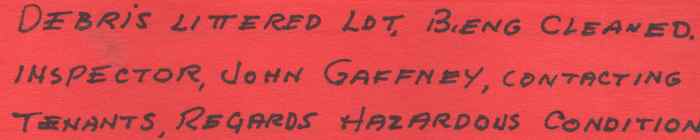 DEBRIS LITTERED LOT, BIENG CLEANED.
INSPECTOR, JOHN GAFFNEY, CONTACTING
TENANTS, REGARDS HAZARDOUS CONDITION